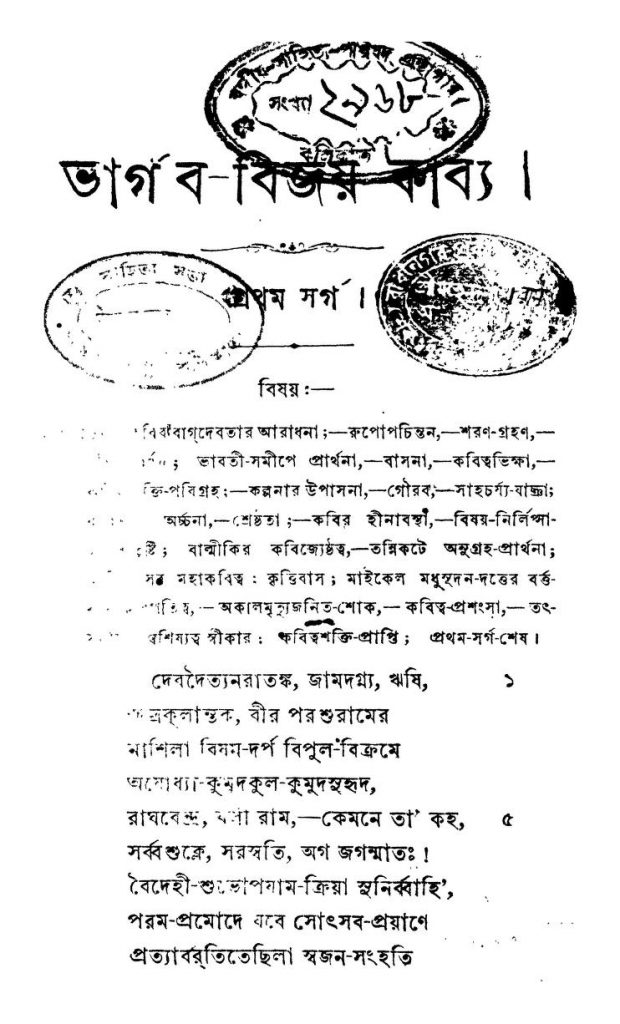 বঙ্গীয়-সাহিত্য-পরিষদ গ্রন্থাগার
সংখ্যা ২৯৬৮
কলিকাতা
ভার্গব-বিজয় কাব্য ।
সাহিত্য সভা
প্রথম সর্গ ।
বিষয়:—
আরাধনা ;—রুপোপচিন্তন,—শরণ-গ্রহণ,—
ভাবতী-সমীপে প্রার্থনা,—বাসনা,—কবিত্বভিক্ষা,—
কল্পনার উপাসনা,—গৌরব,—সাহচর্য্য-যাচ্ঞা;
অর্চ্চনা,—শ্রেষ্ঠতা ;—কবির হীনাবস্থা,—বিষয়-নির্লিপ্সা-
বাল্মীকির কবিজ্যেষ্ঠত্ব,—তন্নিকটে অনুগ্রহ-প্রার্থনা;
মহাকবিত্ব : কৃত্তিবাস ; মাইকেল মধুসূদন-দত্তের বর্ত্ত-
—অকালমৃত্যুজনিত-শোক,—কবিত্ব-প্রশংসা,—তৎ-
স্বীকার : কবিত্বশক্তি-প্রাপ্তি ; প্রথম-সর্গ-শেষ ।
দেবদৈত্যনরাতঙ্ক, জামদগ্ন্য, ঋষি, ১
বীর পরশুরামের
নাশিলা বিসম-দর্প বিপুল-বিক্রমে
অযোধ্যা-কুমুদকুল-কুমুদসুহৃদ,
রাঘবেন্দ্র, রাম,—কেমনে তা' কহ, ৫
সর্ব্বশুক্লে, সরস্বতি, অগ জগন্মাতঃ !
বৈদেহী-শুভোপযাম-ক্রিয়া সুনির্ব্বাহি',
পরম-প্রমোদে যবে সোৎসব-প্রয়াণে
প্রত্যাবর্ত্তিতেছিলা স্বজন-সংহতি